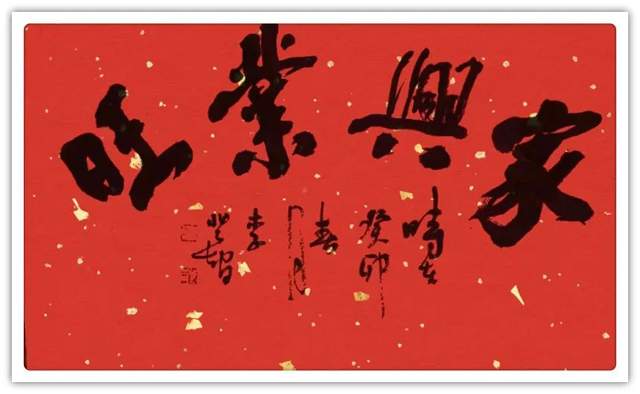 家興業旺
時在
癸卯
春
月
李
智